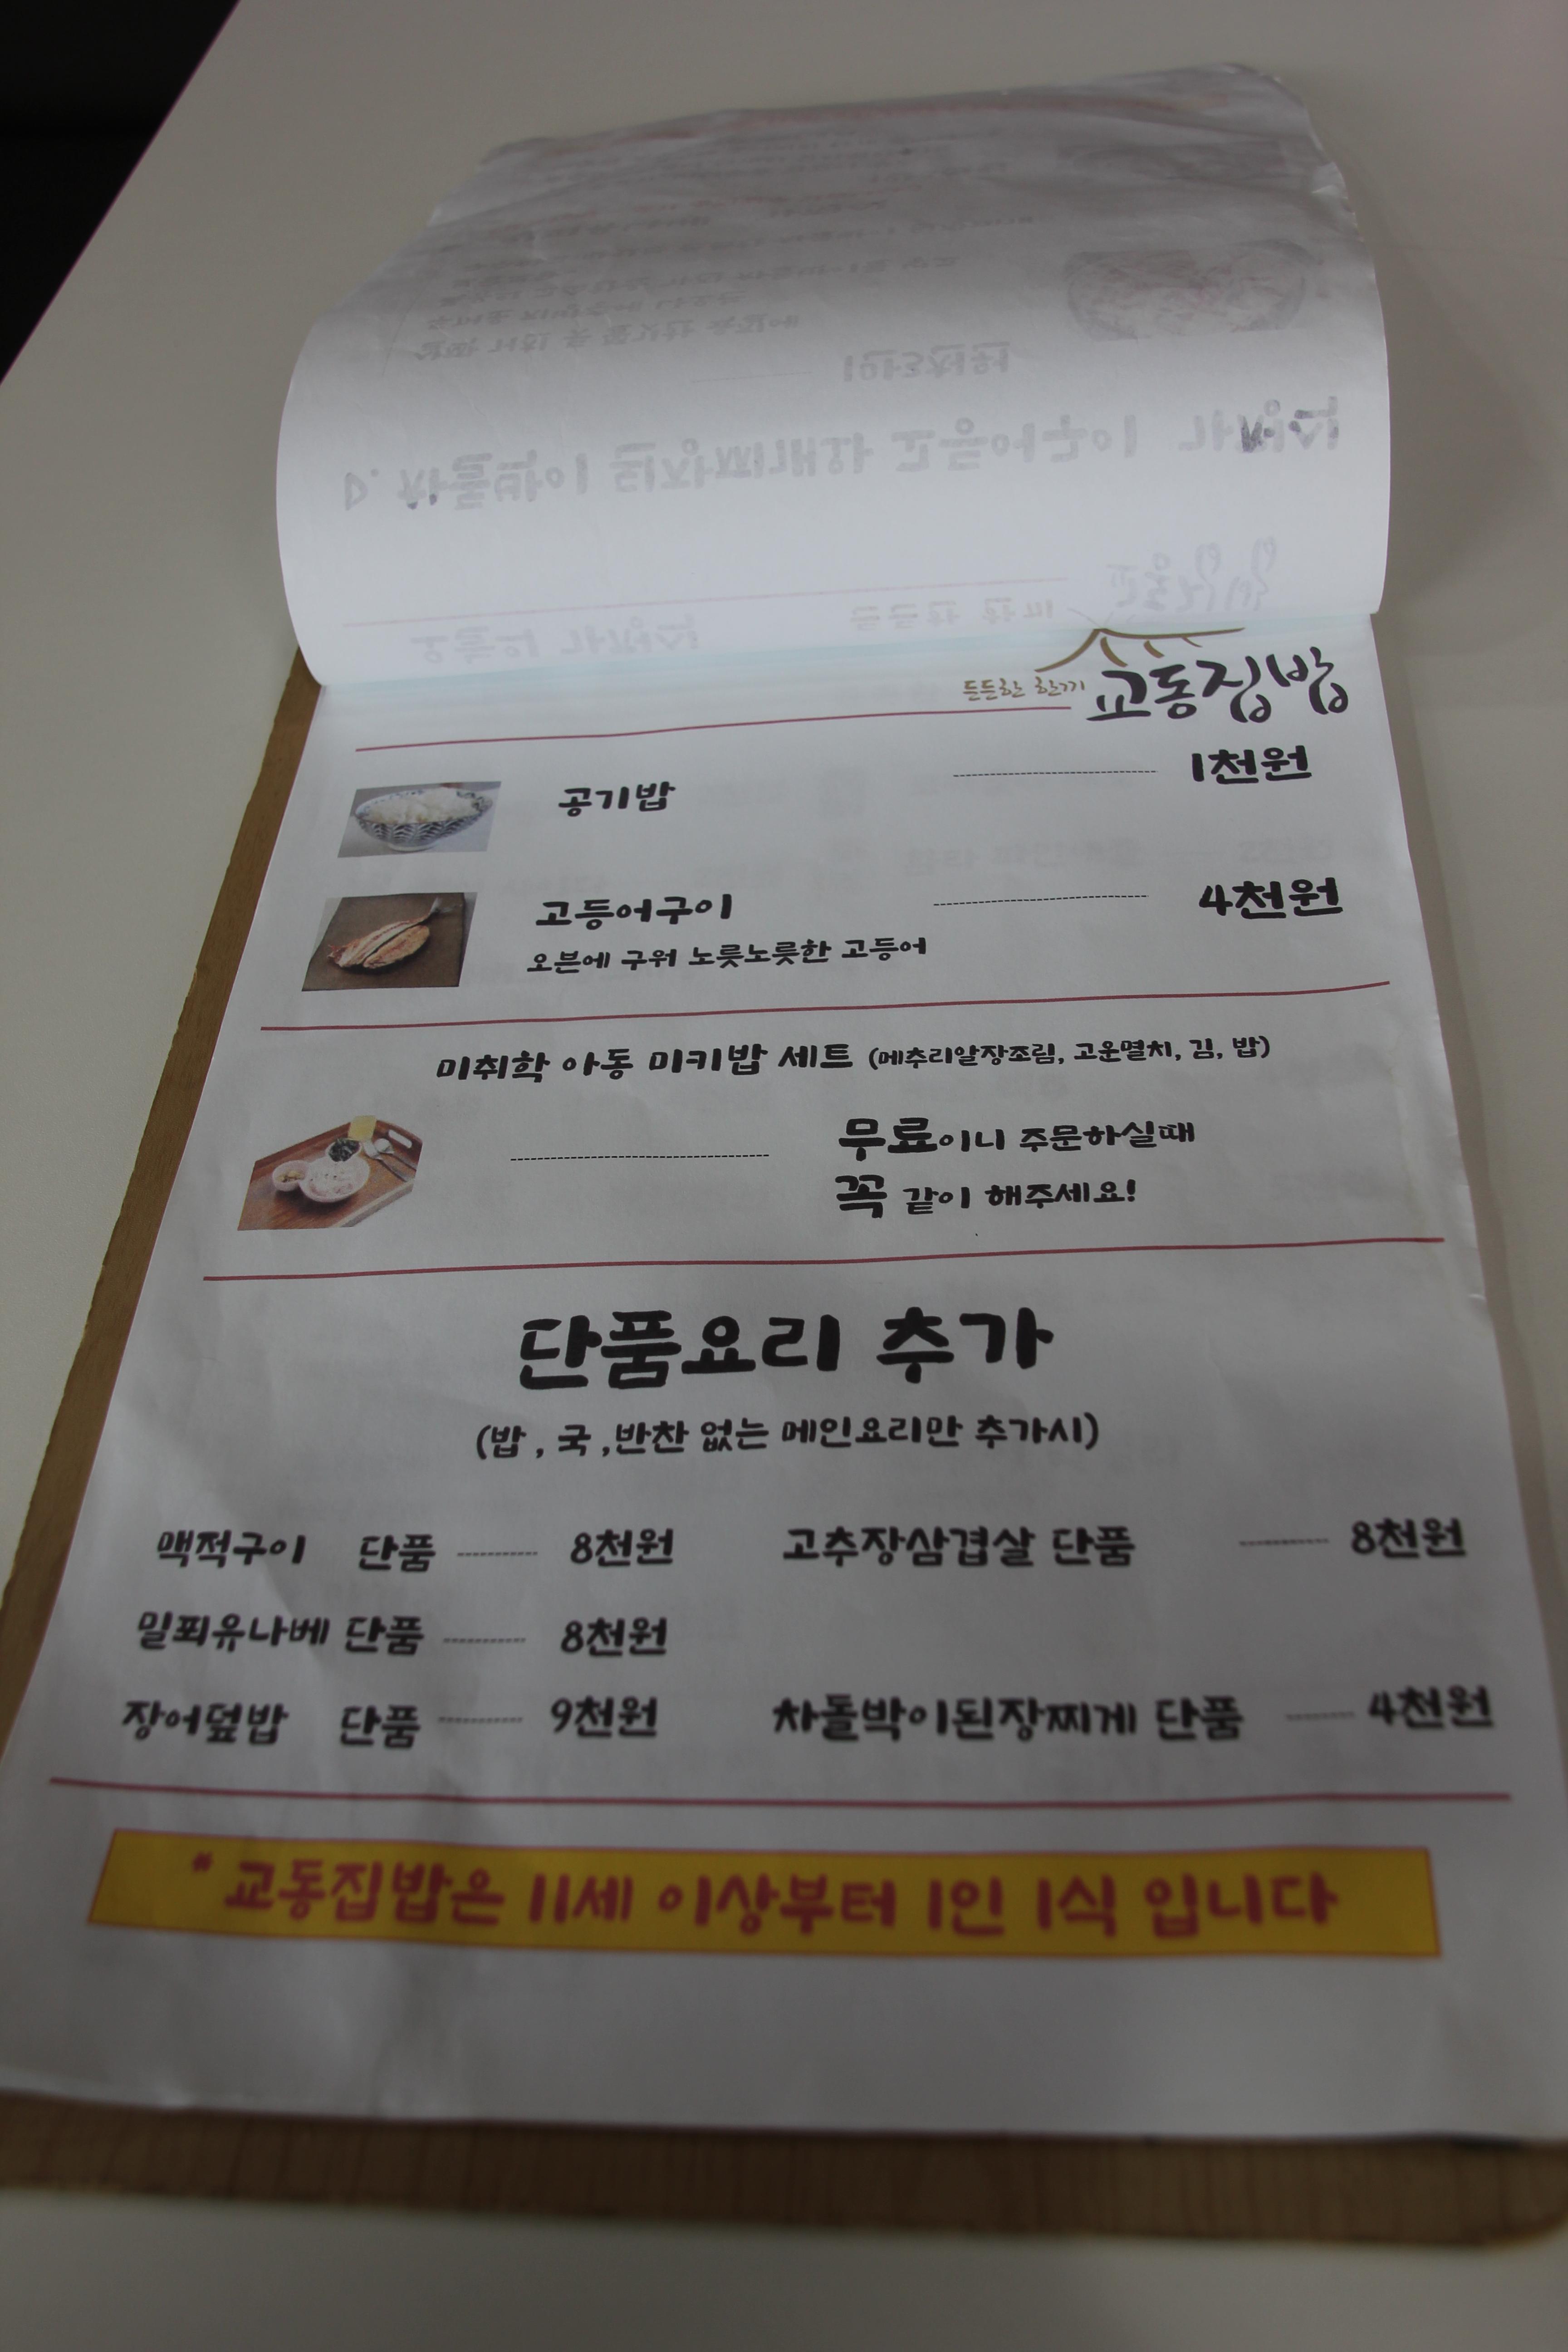 든든한 한끼 교동집밥
공기밥 1천원
고등어구이 4천원
오븐에 구워 노릇노릇한 고등어
미취학 아동 미키밥 세트 (메추리알장조림, 고운멸치, 김, 밥)
무료이니 주문하실때
꼭 같이 해주세요!
단품요리 추가
(밥 , 국 ,반찬 없는 메인요리만 추가시)
맥적구이 단품 8천원 고추장삼겹살 단품 8천원
밀푀유나베 단품 8천원
장어덮밥 단품 9천원 차돌박이된장찌게 단품 4천원
* 교동집밥은 11세 이상부터 1인 1식 입니다